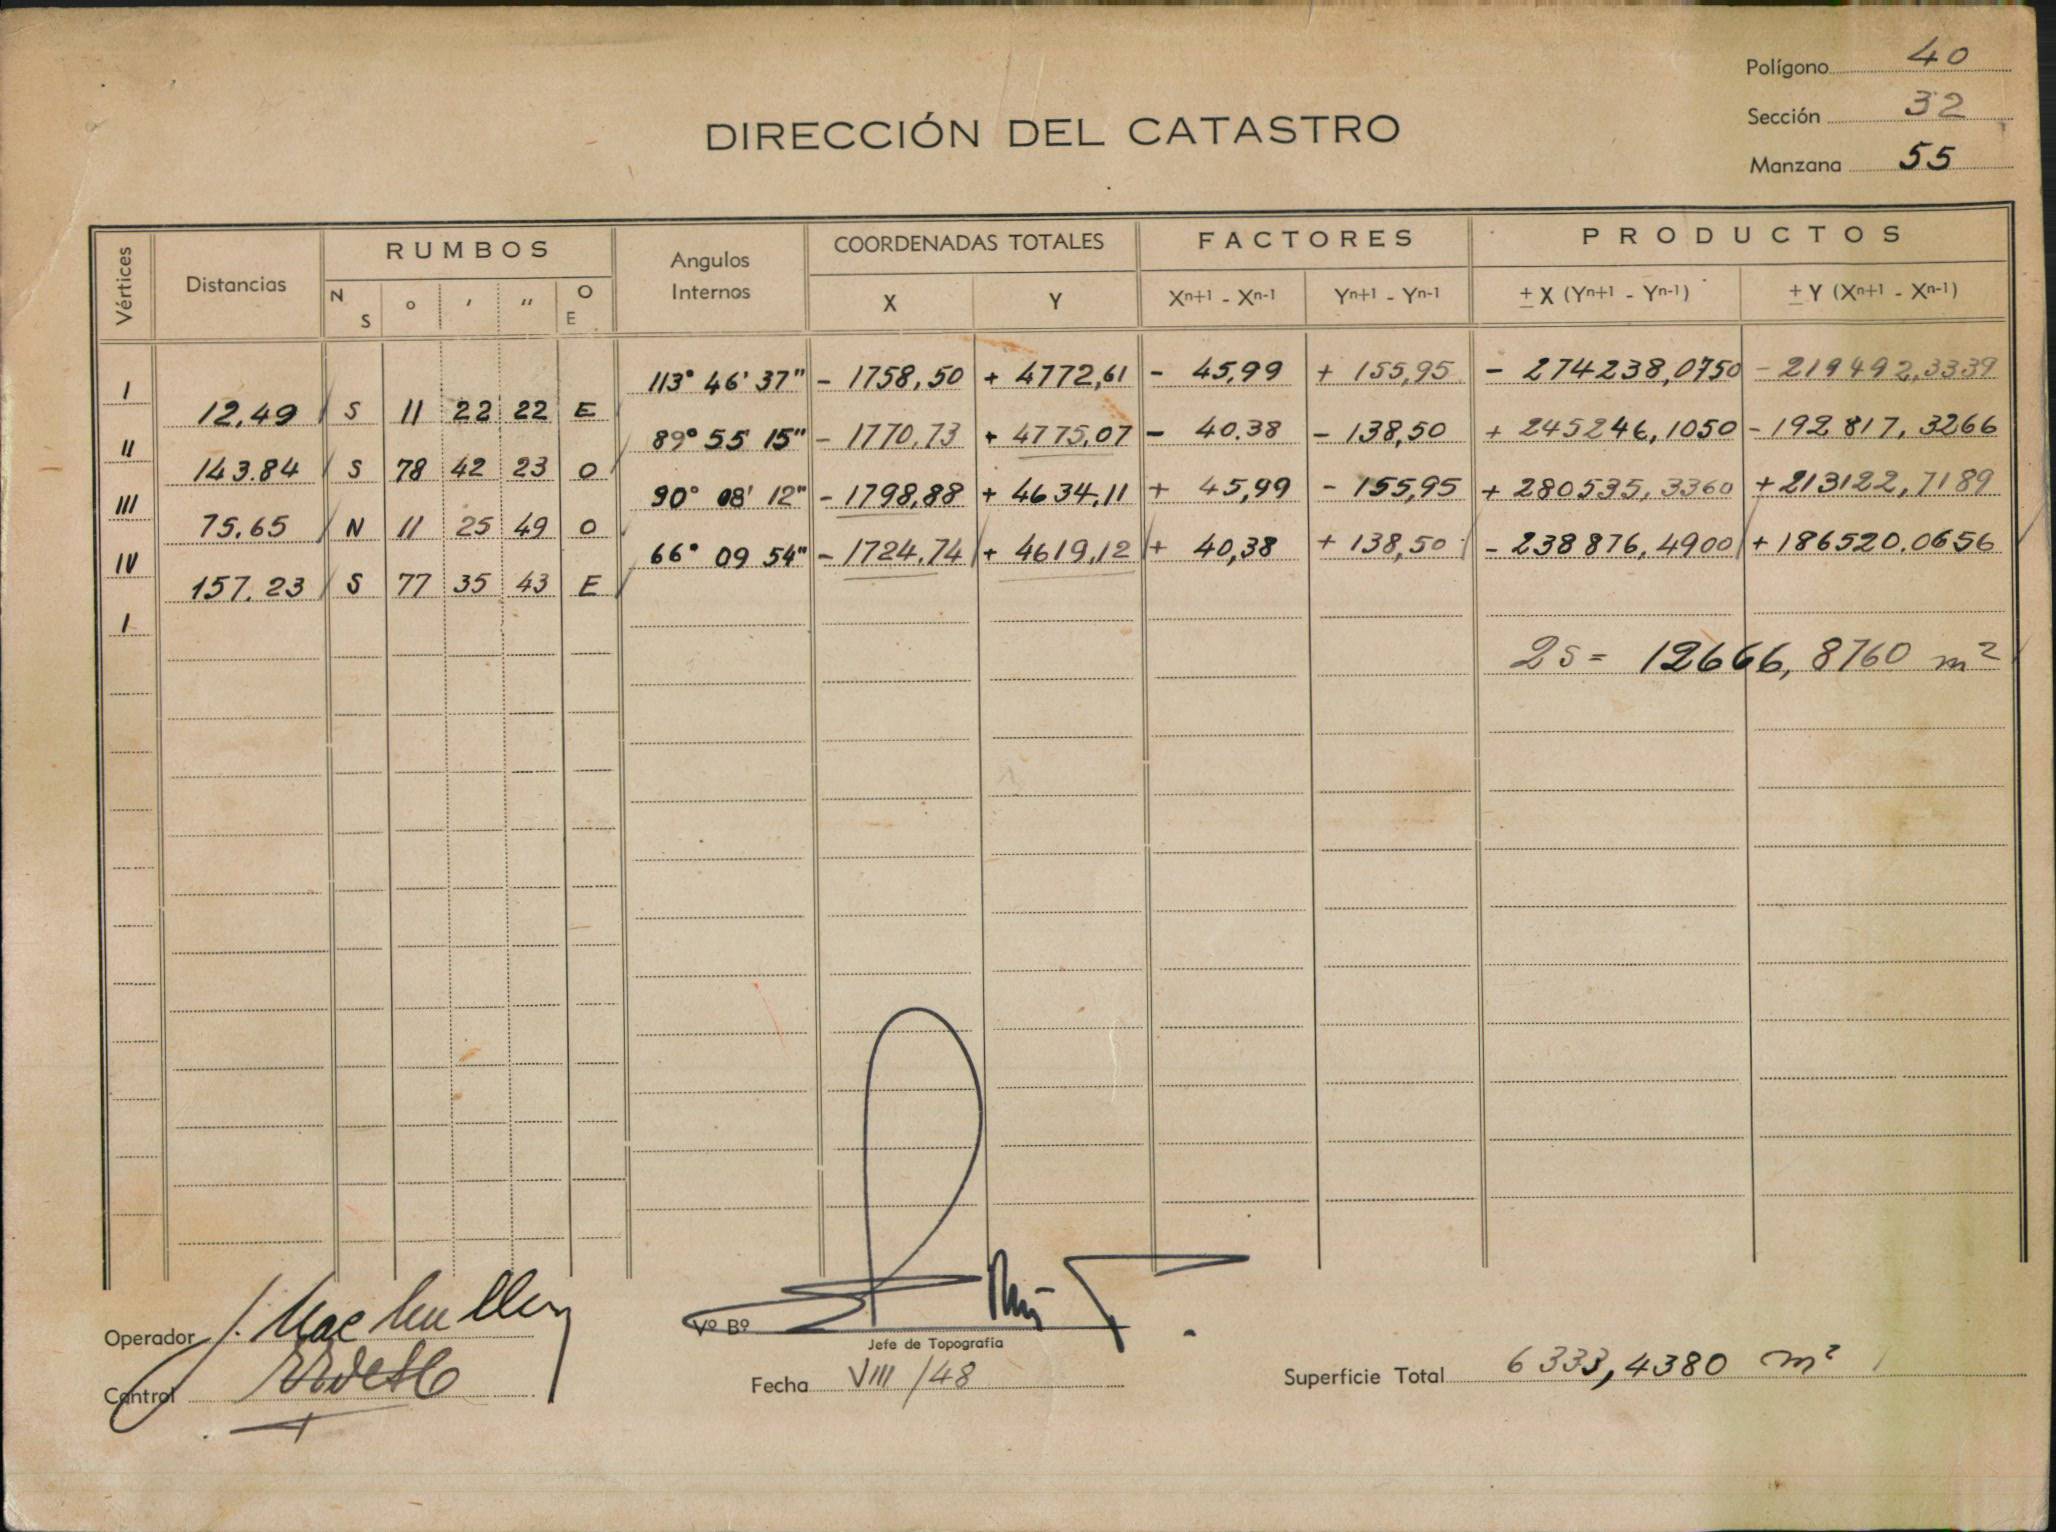 Polígono 40
Sección 32
Manzana 55
DIRECCIÓN DEL CATASTRO
Vértices Distancias RUMBOS Angulos Internos COORDENADAS TOTALES FACTORES PRODUCTOS
N S ° ' " O E X Y Xn+1 - Xn-1 Yn+1 - Yn-1 ± X (Yn+1 - Yn-1) ± Y (Xn+1 - Xn-1)
I 113° 46' 37" - 1758,50 + 4772,61 - 45,99 + 155,95 - 274238,0750 - 219492,3339
12,49 S 11 22 22 E
II 89° 55' 15" - 1770,73 + 4775,07 - 40.38 - 138,50 + 245246,1050 - 192817,3266
143.84 S 78 42 23 O
III 90° 08' 12" - 1798,88 + 4634,11 + 45,99 - 155,95 + 280535,3360 + 213122,7189
75.65 N 11 25 49 O
IV 66° 09 54" - 1724,74 + 4619,12 + 40,38 + 138,50 - 238876,4900 + 186520.0656
157.23 S 77 35 43 E
I
2s = 12666,8760 m²
Operador J. Mac Mullen
Vº Bº
Jefe de Topografía
Control
Fecha VIII/48
Superficie Total 6333,4380 m²